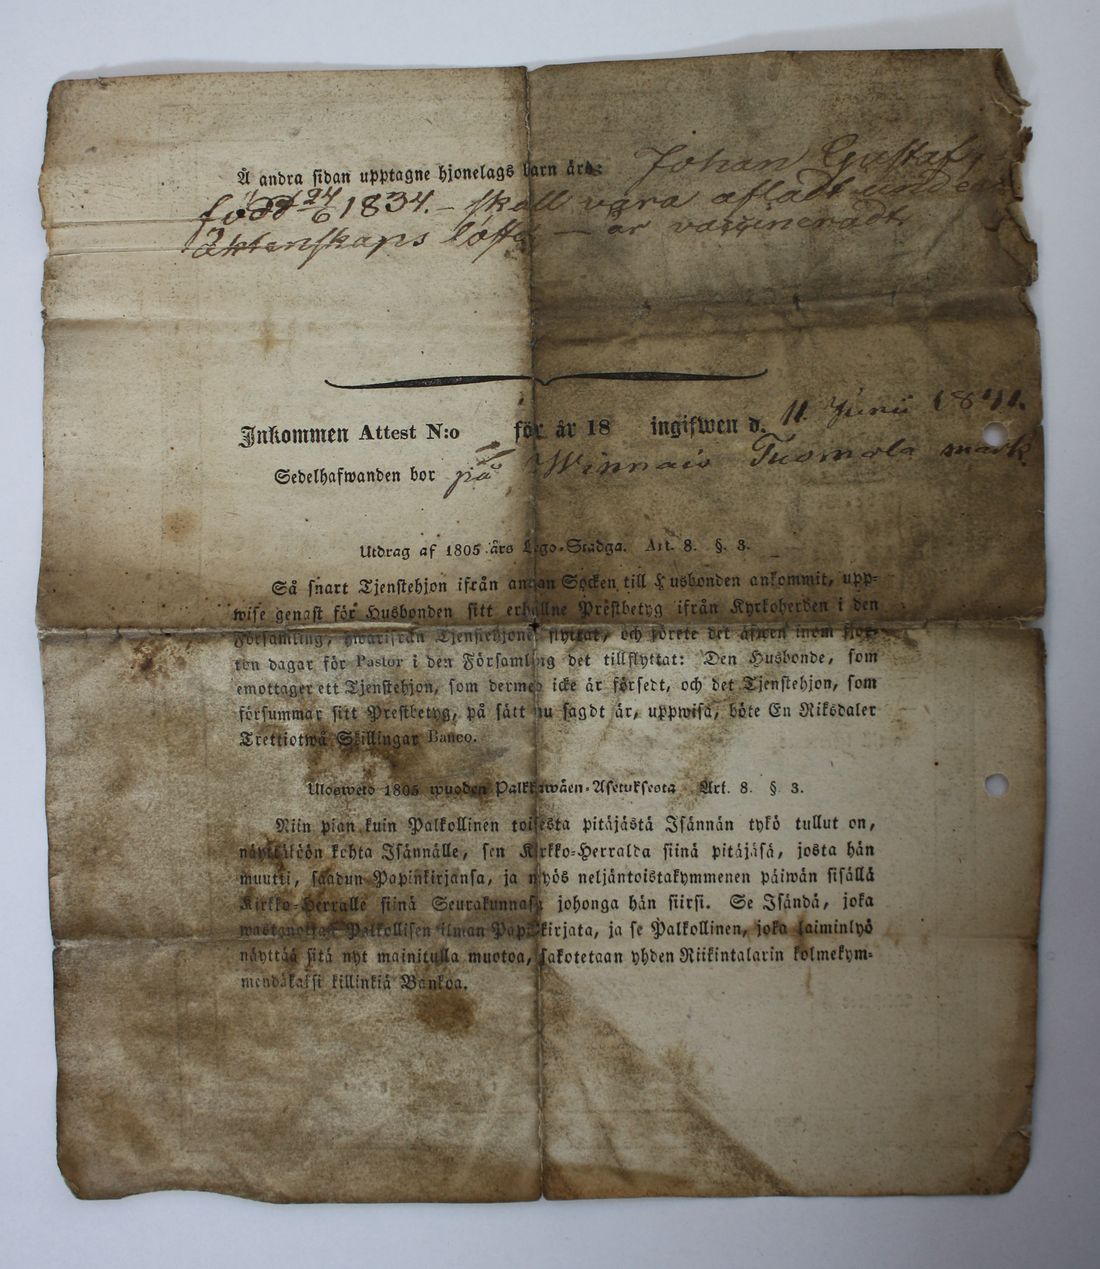 Å andra sidan upptagne hjonelags barn äro: Johan Gustaf
född 24/6 1834. – skall vara afladt under
äktenskaps löfte – är vaccineradt
Inkommen Attest N:o för år 18 ingifwen d. 11 Junii 1841.
Sedelhafwanden bor på Winnais Tuomola mark
Utdrag af 1805 års Lego-Stadga. Art. 8. §. 3.
Så snart Tjenstehjon ifrån annan Socken till Husbonden ankommit, upp-
wise genast för Husbonden sitt erhållne Prestbetyg ifrån Kyrkoherden i den
Församling, hwarifrån Tjenstehjonet flyttat, och förete det äfwen inom fjor-
ton dagar för Pastor i den Församling det tillflyttat: Den Husbonde, som
emottager ett Tjenstehjon, som dermed icke är försedt, och det Tjenstehjon, som
försummar sitt Prestbetyg, på sätt nu sagdt är, uppwisa, böte En Riksdaler
Trettiotwå Skillingar Banco.
Ulosweto 1805 wuoden Palkkawäen-Asetuksesta Art. 8. § 3.
Niin pian kuin Palkollinen toisesta pitäjästä Isännän tykö tullut on,
näyttäköön kohta Isännälle, sen Kirkko-Herralda siinä pitäjäsä, josta hän
muutti, saadun Papinkirjansa, ja myös neljäntoistakymmenen päiwän sisällä
Kirkko-Herralle siinä Seurakunnasa johonga hän siirsi. Se Isändä, joka
wastanottaa Palkollisen ilman Papinkirjata, ja se Palkollinen, joka laiminlyö
näyttää sitä nyt mainitulla muotoa, sakotetaan yhden Riikintalarin kolmekym-
mendäkaksi killinkiä Bankoa.